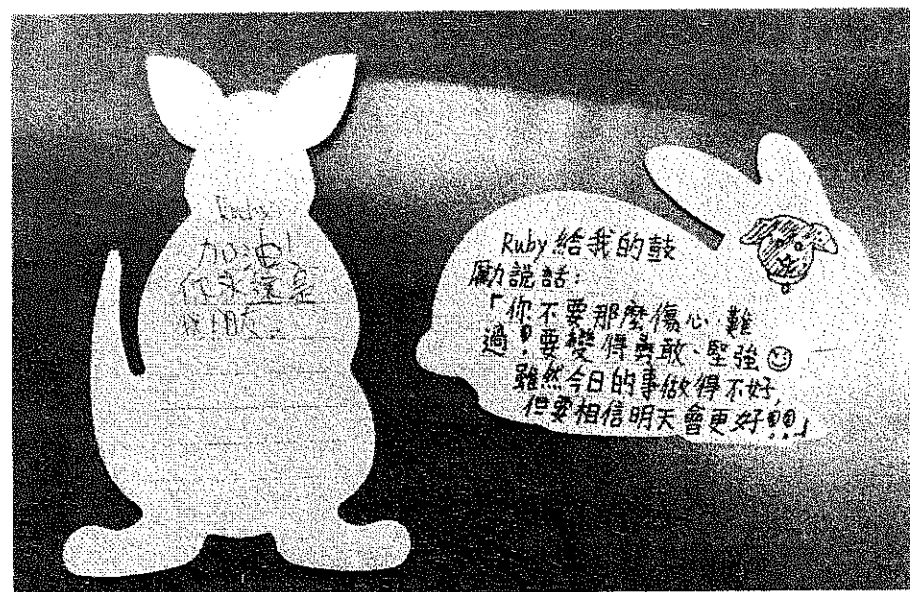 Ruby:
加油!
你永遠是
Ruby 給我的鼓
勵說話:
「你不要那麼傷心、難
過!要變得勇敢、堅強☺
雖然今日的事做得不好,
但要相信明天會更好!!」